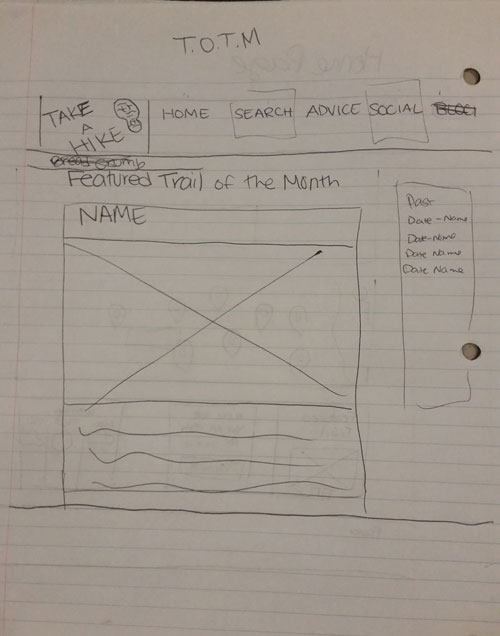 T.O.T.M
TAKE
A
HIKE
HOME SEARCH ADVICE SOCIAL BLOG
Bread Crumb
Featured Trail of the Month
NAME
Past
Date - Name
Date - Name
Date Name
Date Name